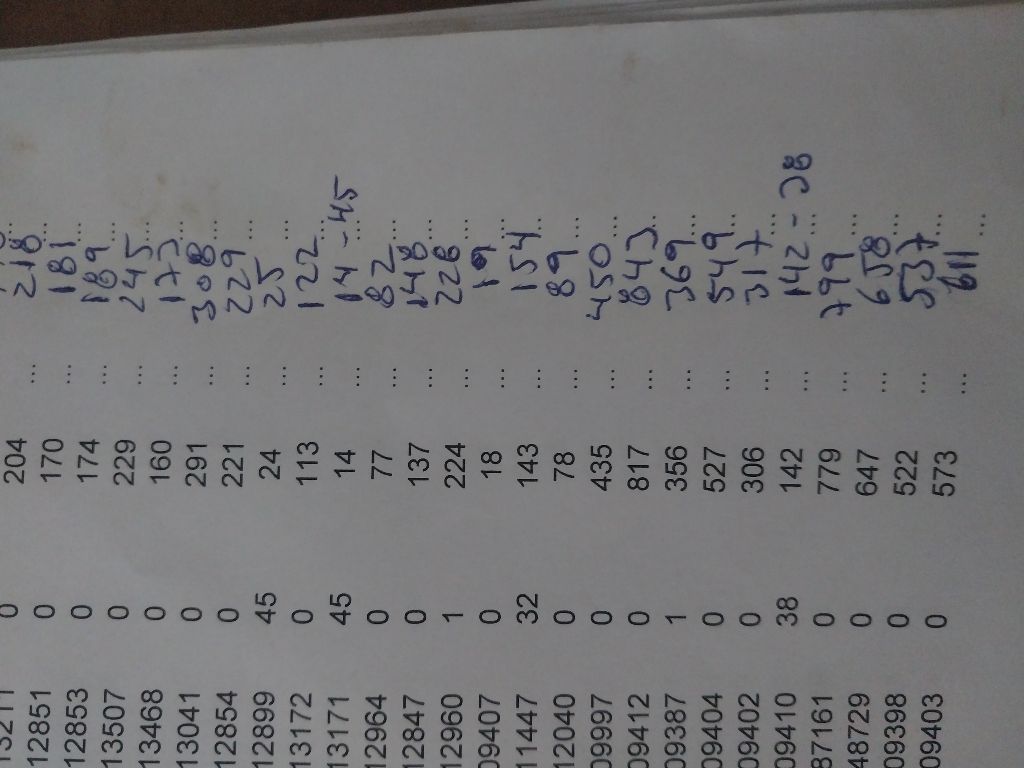 13211 0 204 ... 218 ...
12851 0 170 ... 181 ...
12853 0 174 ... 189 ...
13507 0 229 ... 245 ...
13468 0 160 ... 173 ...
13041 0 291 ... 308 ...
12854 0 221 ... 229 ...
12899 45 24 ... 25 ...
13172 0 113 ... 122 ...
13171 45 14 ... 14 - 45 ...
12964 0 77 ... 82 ...
12847 0 137 ... 148 ...
12960 1 224 ... 228 ...
09407 0 18 ... 19 ...
11447 32 143 ... 154 ...
12040 0 78 ... 89 ...
09997 0 435 ... 450 ...
09412 0 817 ... 843 ...
09387 1 356 ... 369 ...
09404 0 527 ... 549 ...
09402 0 306 ... 317 ...
09410 38 142 ... 142 - 38 ...
87161 0 779 ... 799 ...
48729 0 647 ... 658 ...
09398 0 522 ... 537 ...
09403 0 573 ... 611 ...